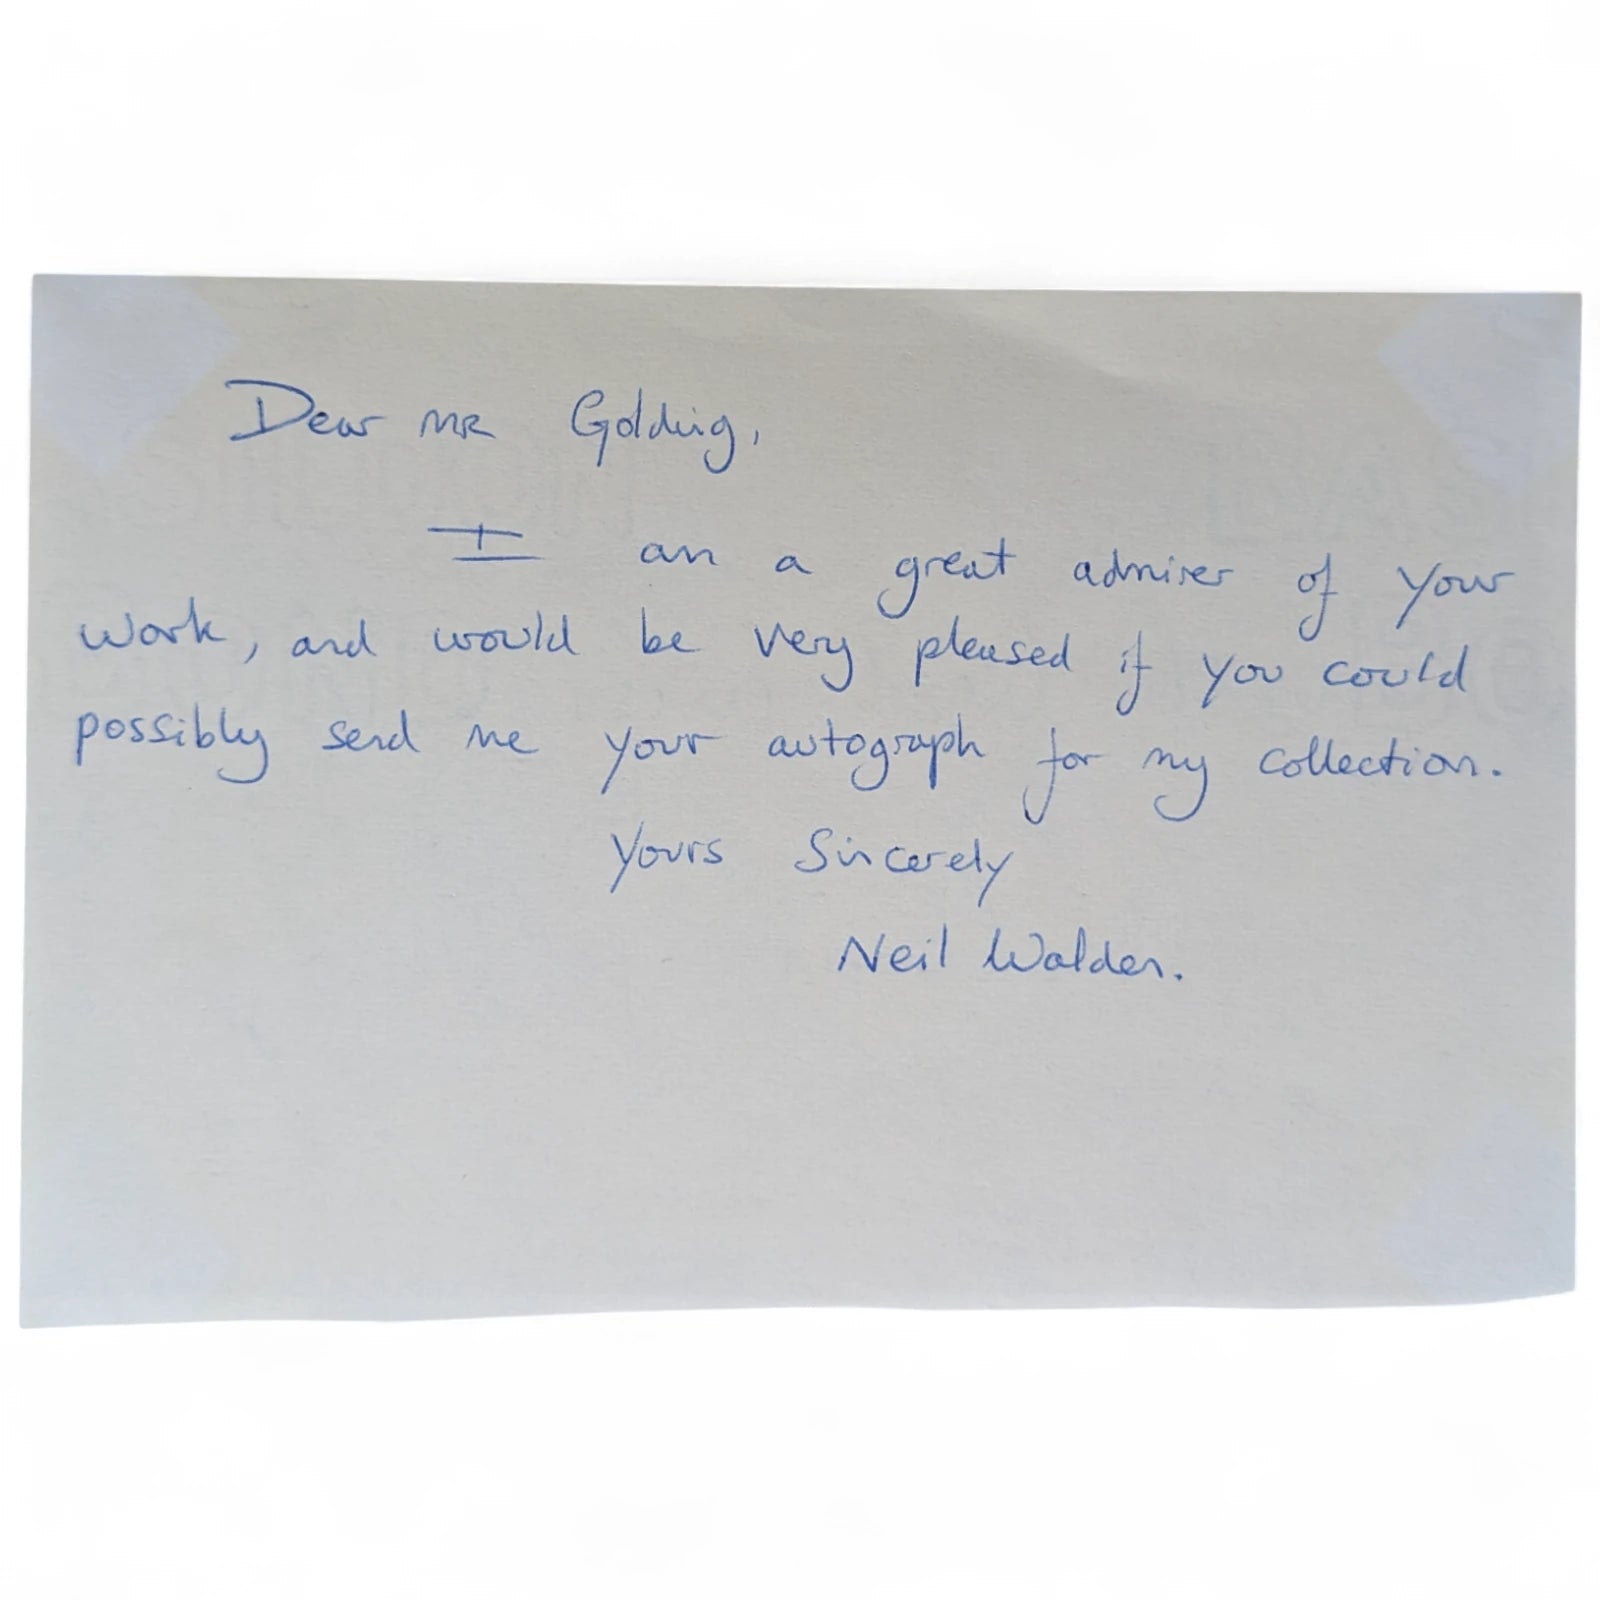 Dear MR Golding,
I am a great admirer of your
work, and would be very pleased if you could
possibly send me your autograph for my collection.
Yours Sincerely
Neil Walden.